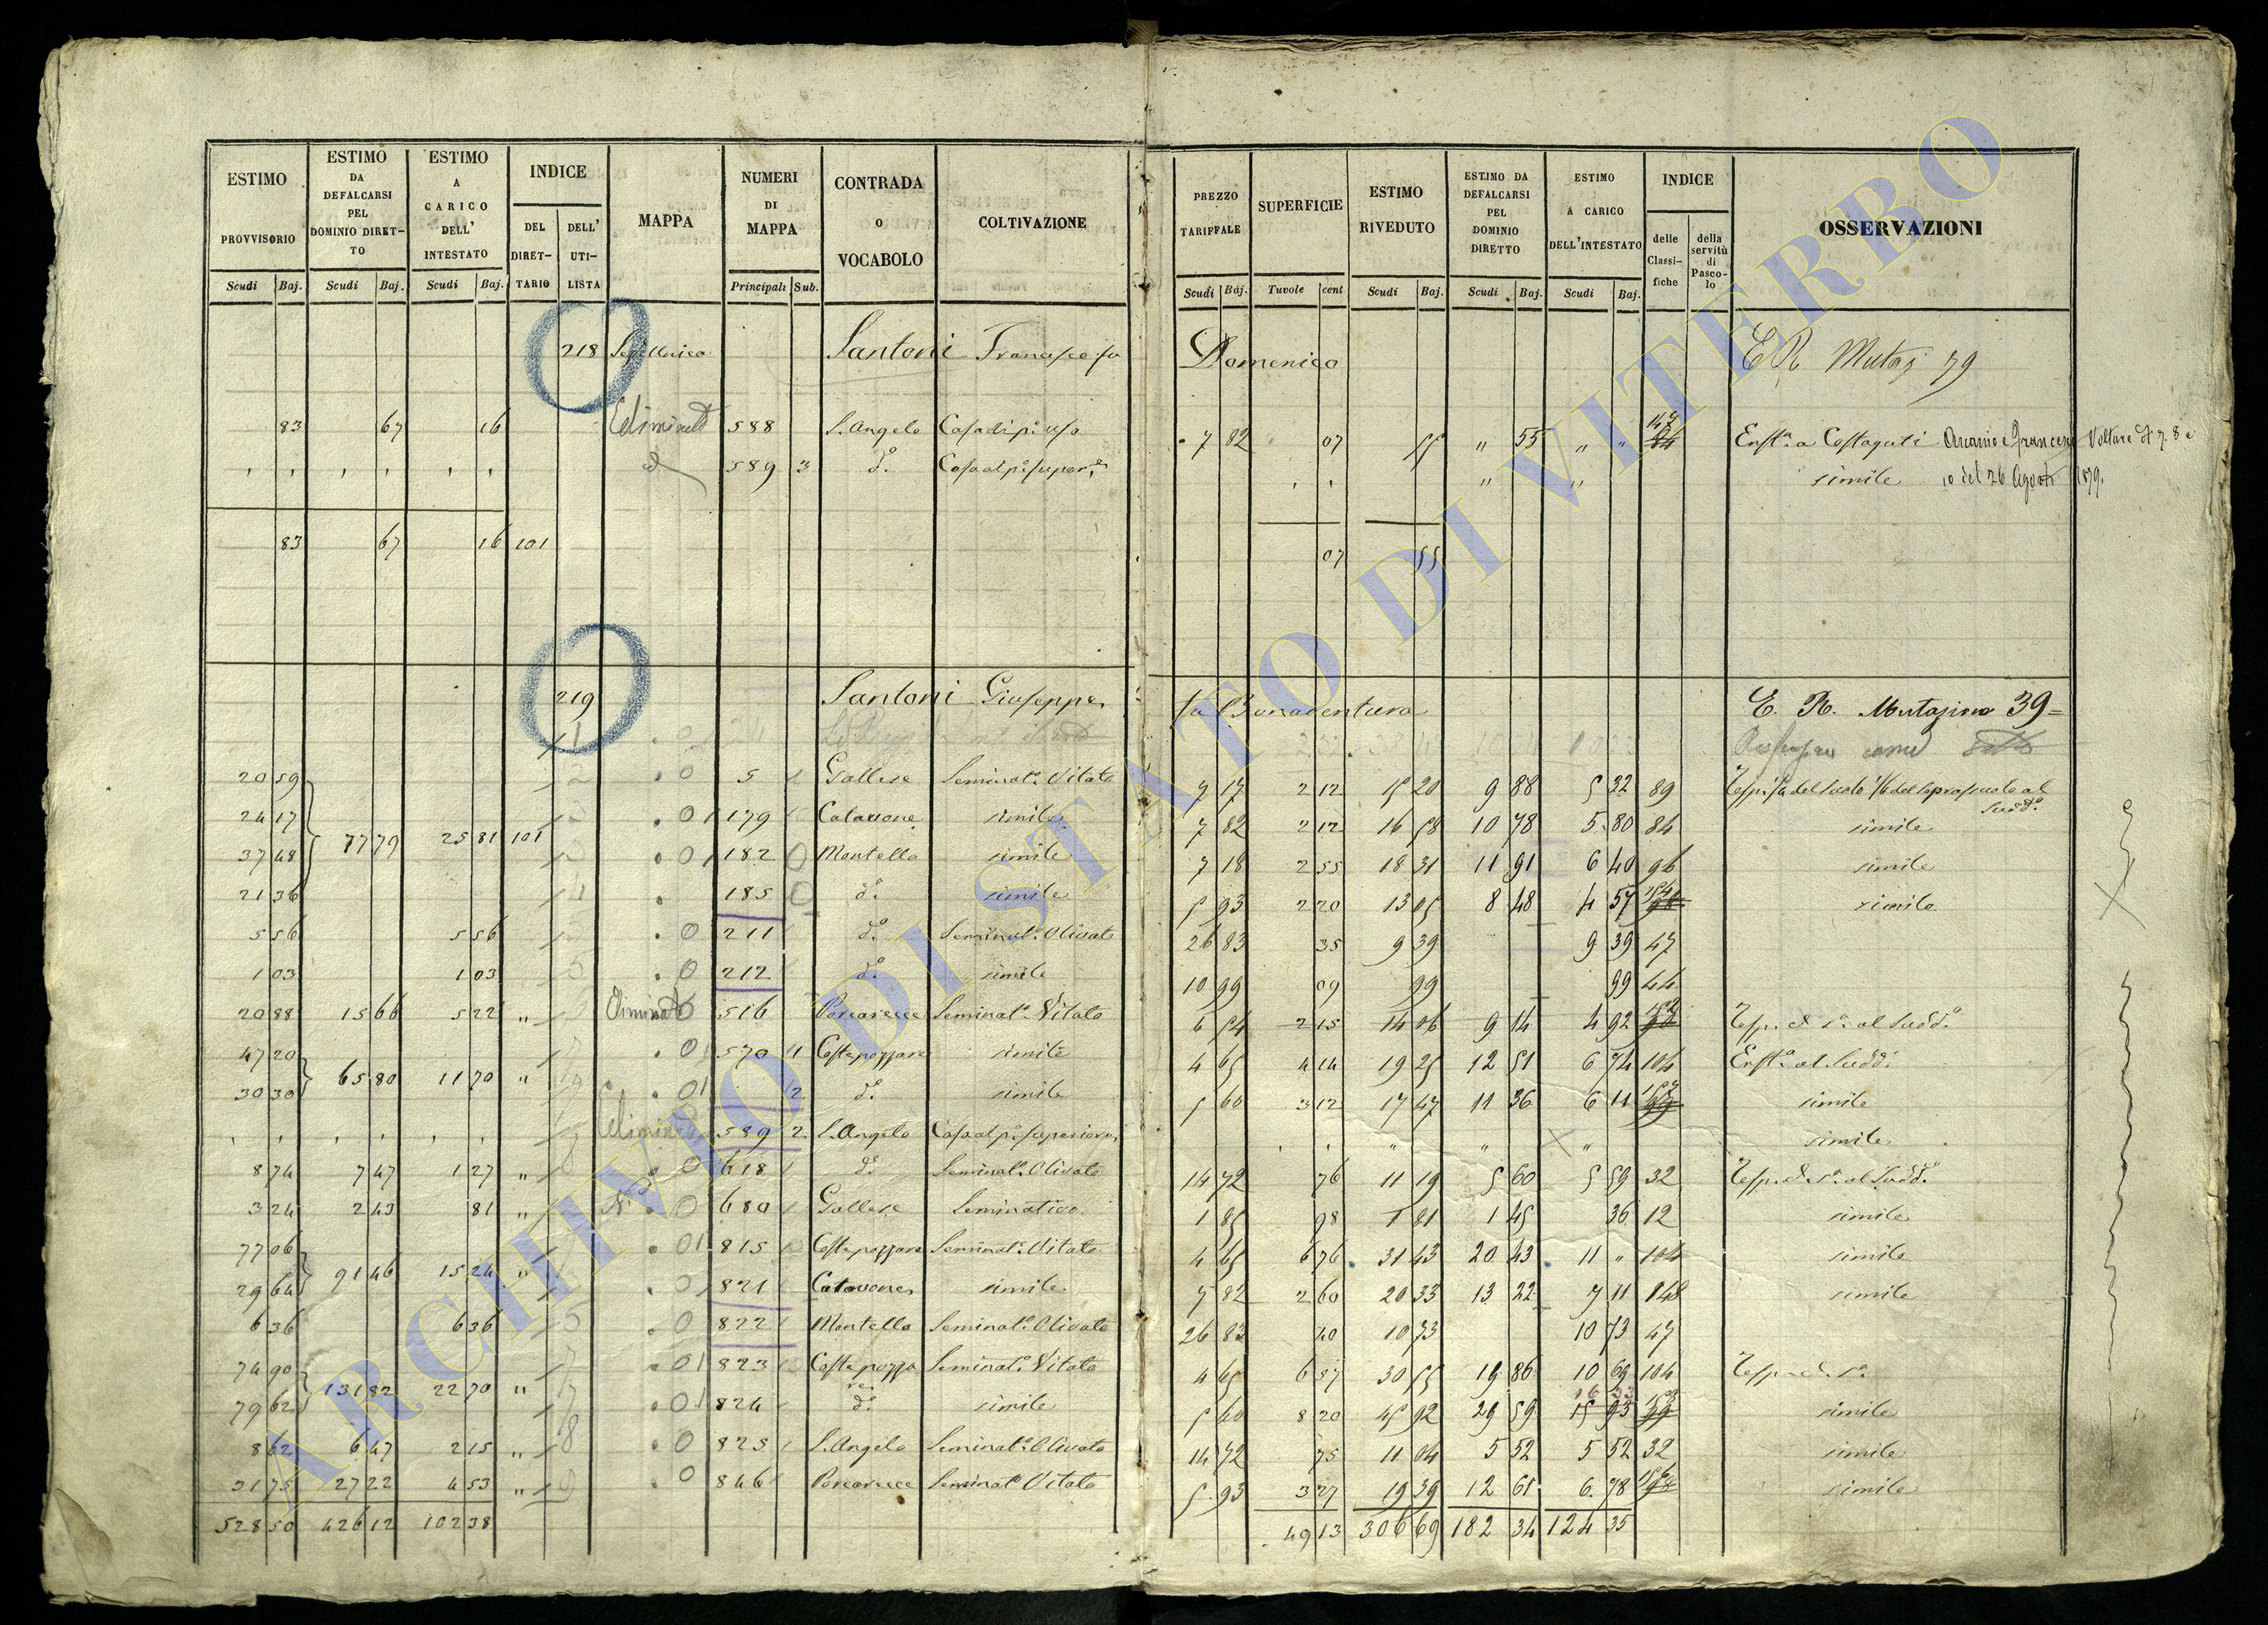 ESTIMO PROVVISORIO
ESTIMO DA DEFALCARSI PEL DOMINIO DIRET-TO
ESTIMO A CARICO DELL' INTESTATO
INDICE
DEL DIRET-TARIO
DELL' UTI-LISTA
MAPPA
NUMERI DI MAPPA
CONTRADA O VOCABOLO
COLTIVAZIONE
PREZZO TARIFFALE
SUPERFICIE
ESTIMO RIVEDUTO
ESTIMO DA DEFALCARSI PEL DOMINIO DIRETTO
ESTIMO A CARICO DELL'INTESTATO
INDICE
delle Classi-fiche
della servitù di Pasco-lo
OSSERVAZIONI
Scudi Baj. Scudi Baj. Scudi Baj. Principali Sub. Scudi Baj. Tavole cent. Scudi Baj. Scudi Baj. Scudi Baj.
218 Santoni Francesco fu Domenico E R Mutaz 39
83 67 16 Eliminato 588 S. Angelo Casa di p.° uso 7 82 07 55 " 55 " " Enft.ª a Costaguti Ascanio e Francesco Volture di
589 3 d.° Casa al p.° super.e " " simile 10 del 26 Agosto 1879.
83 67 16 101 07 55
219 Santoni Giuseppe fu Bonaventura E. R. Mutazione 39=
20 59 5 Gallese Seminat.° Vitato 7 17 2 12 15 20 9 88 5 32 89
24 17 179 Catavone simile 7 82 2 12 16 58 10 78 5 80 84 simile
77 79 25 81 101
37 48 182 Montello simile 7 18 2 55 18 31 11 91 6 40 96 simile
21 36 185 d.° simile 5 93 2 20 13 05 8 48 4 57 simile
5 56 5 56 211 d.° Seminat.° Olivato 26 83 35 9 39 9 39 47
1 03 1 03 212 d.° simile 10 99 09 99 99 44
20 88 15 66 5 22 " Eliminato 516 Porcarecce Seminat.° Vitato 6 54 2 15 14 06 9 14 4 92
47 20 570 1 Costepozzare simile 4 65 4 14 19 25 12 51 6 74 104 Enft.ª al Sudd.°
65 80 11 70 "
30 30 2 d.° simile 5 60 3 12 17 47 11 36 6 11 simile
Eliminato 589 2 S. Angelo Casa al p.° superiore " " " simile
8 74 7 47 1 27 " 618 d.° Seminat.° Olivato 14 72 76 11 19 5 60 5 59 32
3 24 2 43 81 " 680 Gallese Seminativo 1 85 98 1 81 1 45 36 12 simile
77 06 815 Costepozzare Seminat.° Vitato 4 65 6 76 31 43 20 43 11 " 104 simile
91 46 15 24 "
29 64 821 Catavone simile 7 82 2 60 20 33 13 22 7 11 84 simile
6 36 6 36 822 Montello Seminat.° Olivato 26 83 40 10 73 10 73 47
74 90 823 Costepozzare Seminat.° Vitato 4 65 6 57 30 55 19 86 10 69 104
131 82 22 70 "
79 62 824 d.° simile 5 60 8 20 45 92 29 59 15 93 simile
8 62 6 47 2 15 " 825 S. Angelo Seminat.° Olivato 14 72 75 11 04 5 52 5 52 32 simile
31 75 27 22 4 53 " 846 Porcarecce Seminat.° Vitato 5 93 3 27 19 39 12 61 6 78 simile
528 50 426 12 102 38 49 13 306 69 182 34 124 35
ARCHIVIO DI STATO DI VITERBO